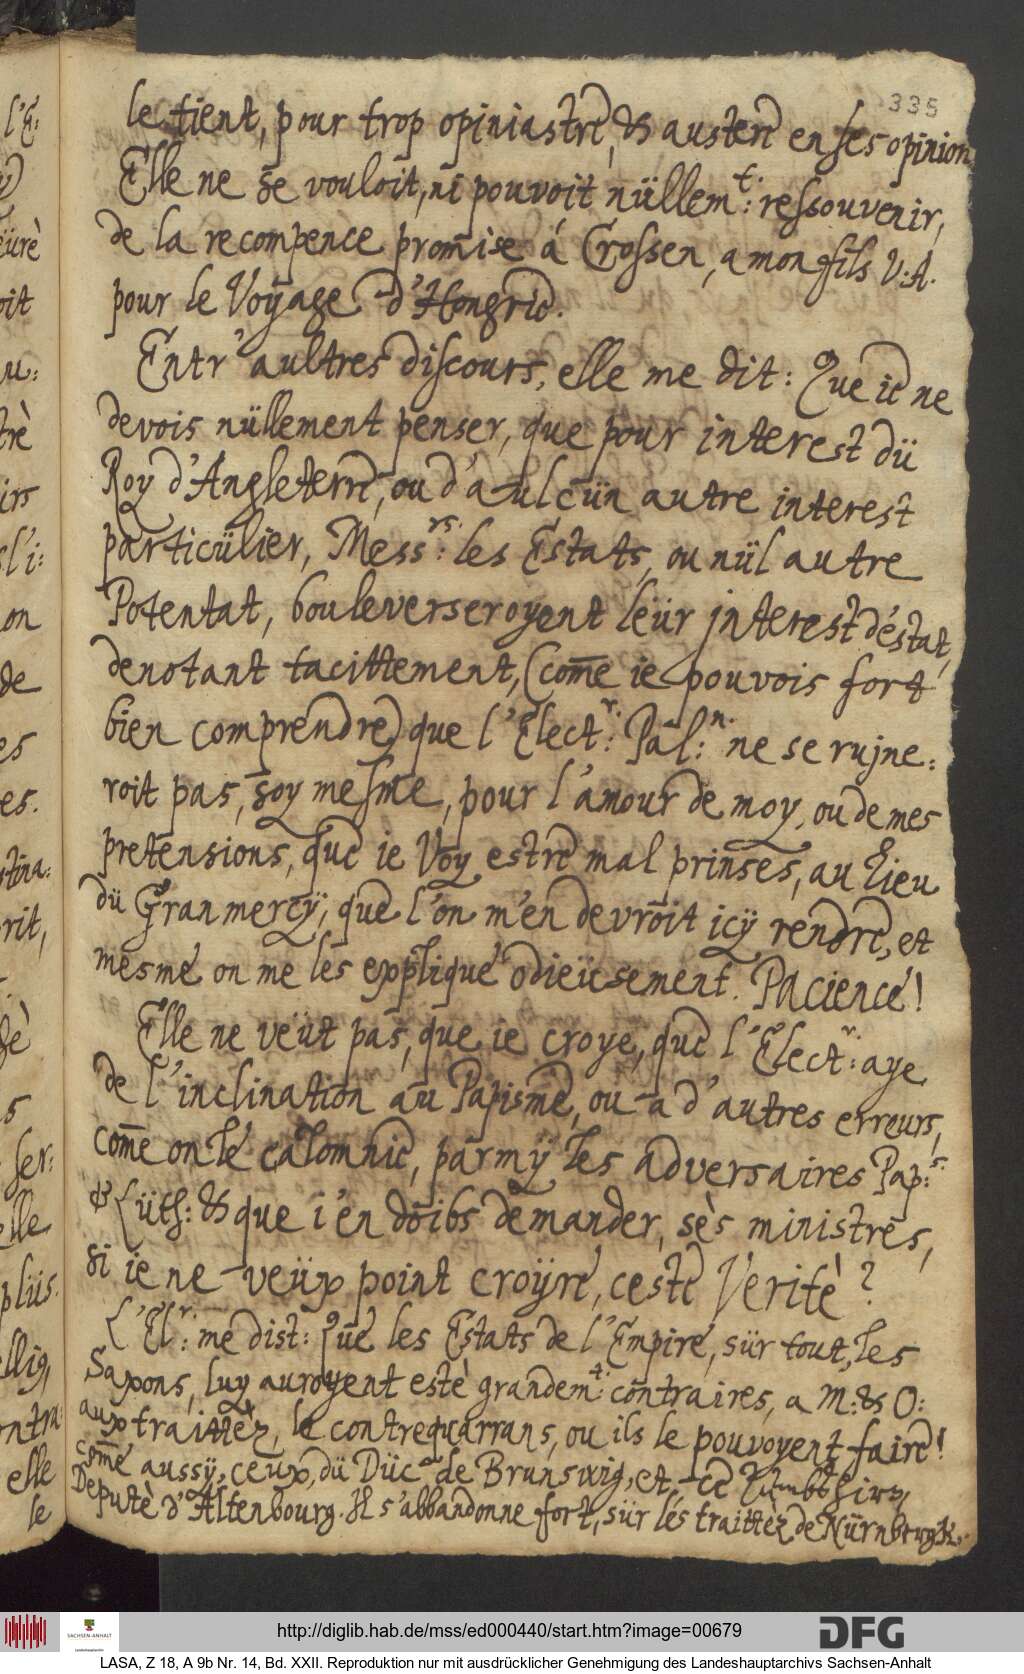 335
le tient, pour trop opiniastre, & austere en ses opinion
Elle ne se vouloit, ni pouvoit nüllem.t: ressouvenir,
de la recompence promise á Crossen, a mon fils V: A.
pour le Voyage d'Hongrie.
Entr'aultres discours, elle me dit: Que ie ne
devois nüllement penser, que pour interest dü
Roy d'Angleterre, ou d'aulcün autre interest
particülier, Mess.rs: les Estats, ou nül autre
Potentat, bouleverseroyent leür interest d'éstat,
denotant tacittement, (com̅e ie pouvois fort
bien comprendre) que l'Elect.r: Pal:n. ne se rujne:
roit pas, soy mesme, pour l'amour de moy, ou de mes
pretensions, que ie Voy estre mal prinses, au lieu
dü Granmercÿ, que l'on m'en devroit icÿ rendre, et
mesme on me les explique odieüsement. Pacience!
Elle ne veüt pas, que ie croye, que l'Elect.r: aye
de l'inclination au Papisme, ou a d'autres erreurs,
com̅e on le calomnie, parmÿ les adversaires Pap:s.
& Lüth: & que i'en doibs demander, sès ministres,
si ie ne veüx point croÿre, ceste Veritè?
L'El.r: me dist: Que les Estats de l'Empire, sür tout, les
Saxons, luy auroyent estè grandem.t: contraires, a M: & O:
aux traittèz, le contrequarrans, ou ils le pouvoyent faire!
com̅e aussÿ, ceux, dü Düc de Brunswig, et ce
Deputè d'Altenbourg. Il s'abbandonne fort, sür lés traittèz de Nürnbergk.
http://diglib.hab.de/mss/ed000440/start.htm?image=00679
SACHSEN-ANHALT
DFG
LASA, Z 18, A 9b Nr. 14, Bd. XXII. Reproduktion nur mit ausdrücklicher Genehmigung des Landeshauptarchivs Sachsen-Anhalt